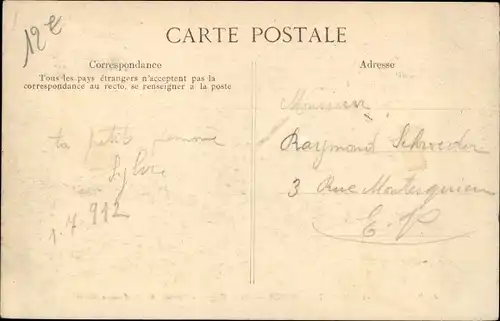 12€
CARTE POSTALE
Correspondance
Tous les pays étrangers n'acceptent pas la
correspondance au recto, se renseigner à la poste
ta petite
Sylvie
1.7.912
Adresse
Monsieur
Raymond Schneider
3 Rue
E.V